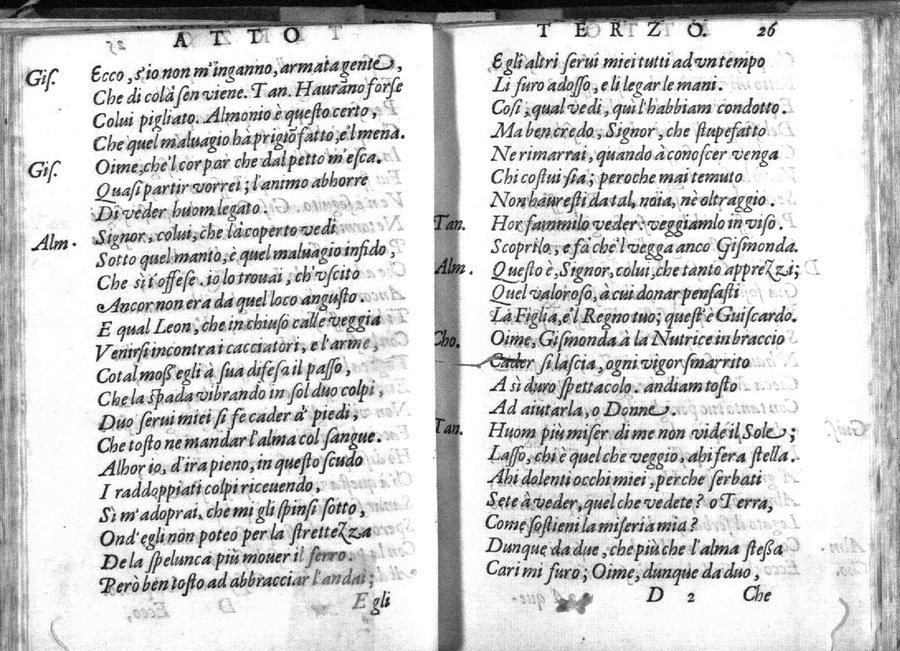 ATTO
Gis. Ecco, s'io non m'inganno, armata gente,
Che di colà sen viene. Tan. Haurāno forse
Colui pigliato. Almonio è questo certo,
Che quel maluagio hà prigiō fatto, e'l mena.
Gis. Oime, che'l cor par che dal petto m'esca.
Quasi partir vorrei; l'animo abhorre
Di veder huom legato.
Alm. Signor, colui, che là coperto vedi
Sotto quel manto, è quel maluagio infido,
Che sì t'offese. io lo trouai, ch'vscito
Ancor non era da quel loco angusto.
E qual Leon, che in chiuso calle veggia
Venirsi incontra i cacciatori, e l'arme,
Cotal moβ' egli à sua difesa il passo,
Che la spada vibrando in sol duo colpi,
Duo serui miei si fe cader a' piedi,
Che tosto ne mandar l'alma col sangue.
Alhor io, d'ira pieno, in questo scudo
I raddoppiati colpi riceuendo,
Sì m'adoprai, che mi gli spinsi sotto,
Ond' egli non poteo per la strettezza
De la spelunca più mouer il ferro.
Però ben tosto ad abbracciar l'andai;
E gli
TERZO. 26
E gli altri serui miei tutti ad vn tempo
Li furo adosso, e li legar le mani.
Così, qual vedi, quì l'habbiam condotto.
Ma ben credo, Signor, che stupefatto
Ne rimarrai, quando à conoscer venga
Chi costui sia; peroche mai temuto
Non hauresti da tal, noia, nè oltraggio.
Tan. Hor fammilo veder: veggiamlo in viso.
Scoprilo, e fà che'l vegga anco Gismonda.
Alm. Questo è, Signor, colui, che tanto apprezzi;
Quel valoroso, à cui donar pensasti
La Figlia, e'l Regno tuo; quest' è Guiscardo.
Cho. Oime, Gismonda à la Nutrice in braccio
Cader si lascia, ogni vigor smarrito
A sì duro spettacolo. andiam tosto
Ad aiutarla, o Donne.
Tan. Huom più miser di me non vide il Sole;
Lasso, chi è quel che veggio, ahi fera stella.
Ahi dolenti occhi miei, perche serbati
Sete à veder, quel che vedete? o Terra,
Come sostieni la miseria mia?
Dunque da due, che più che l'alma steβa
Cari mi furo; Oime, dunque da duo,
D 2 Che